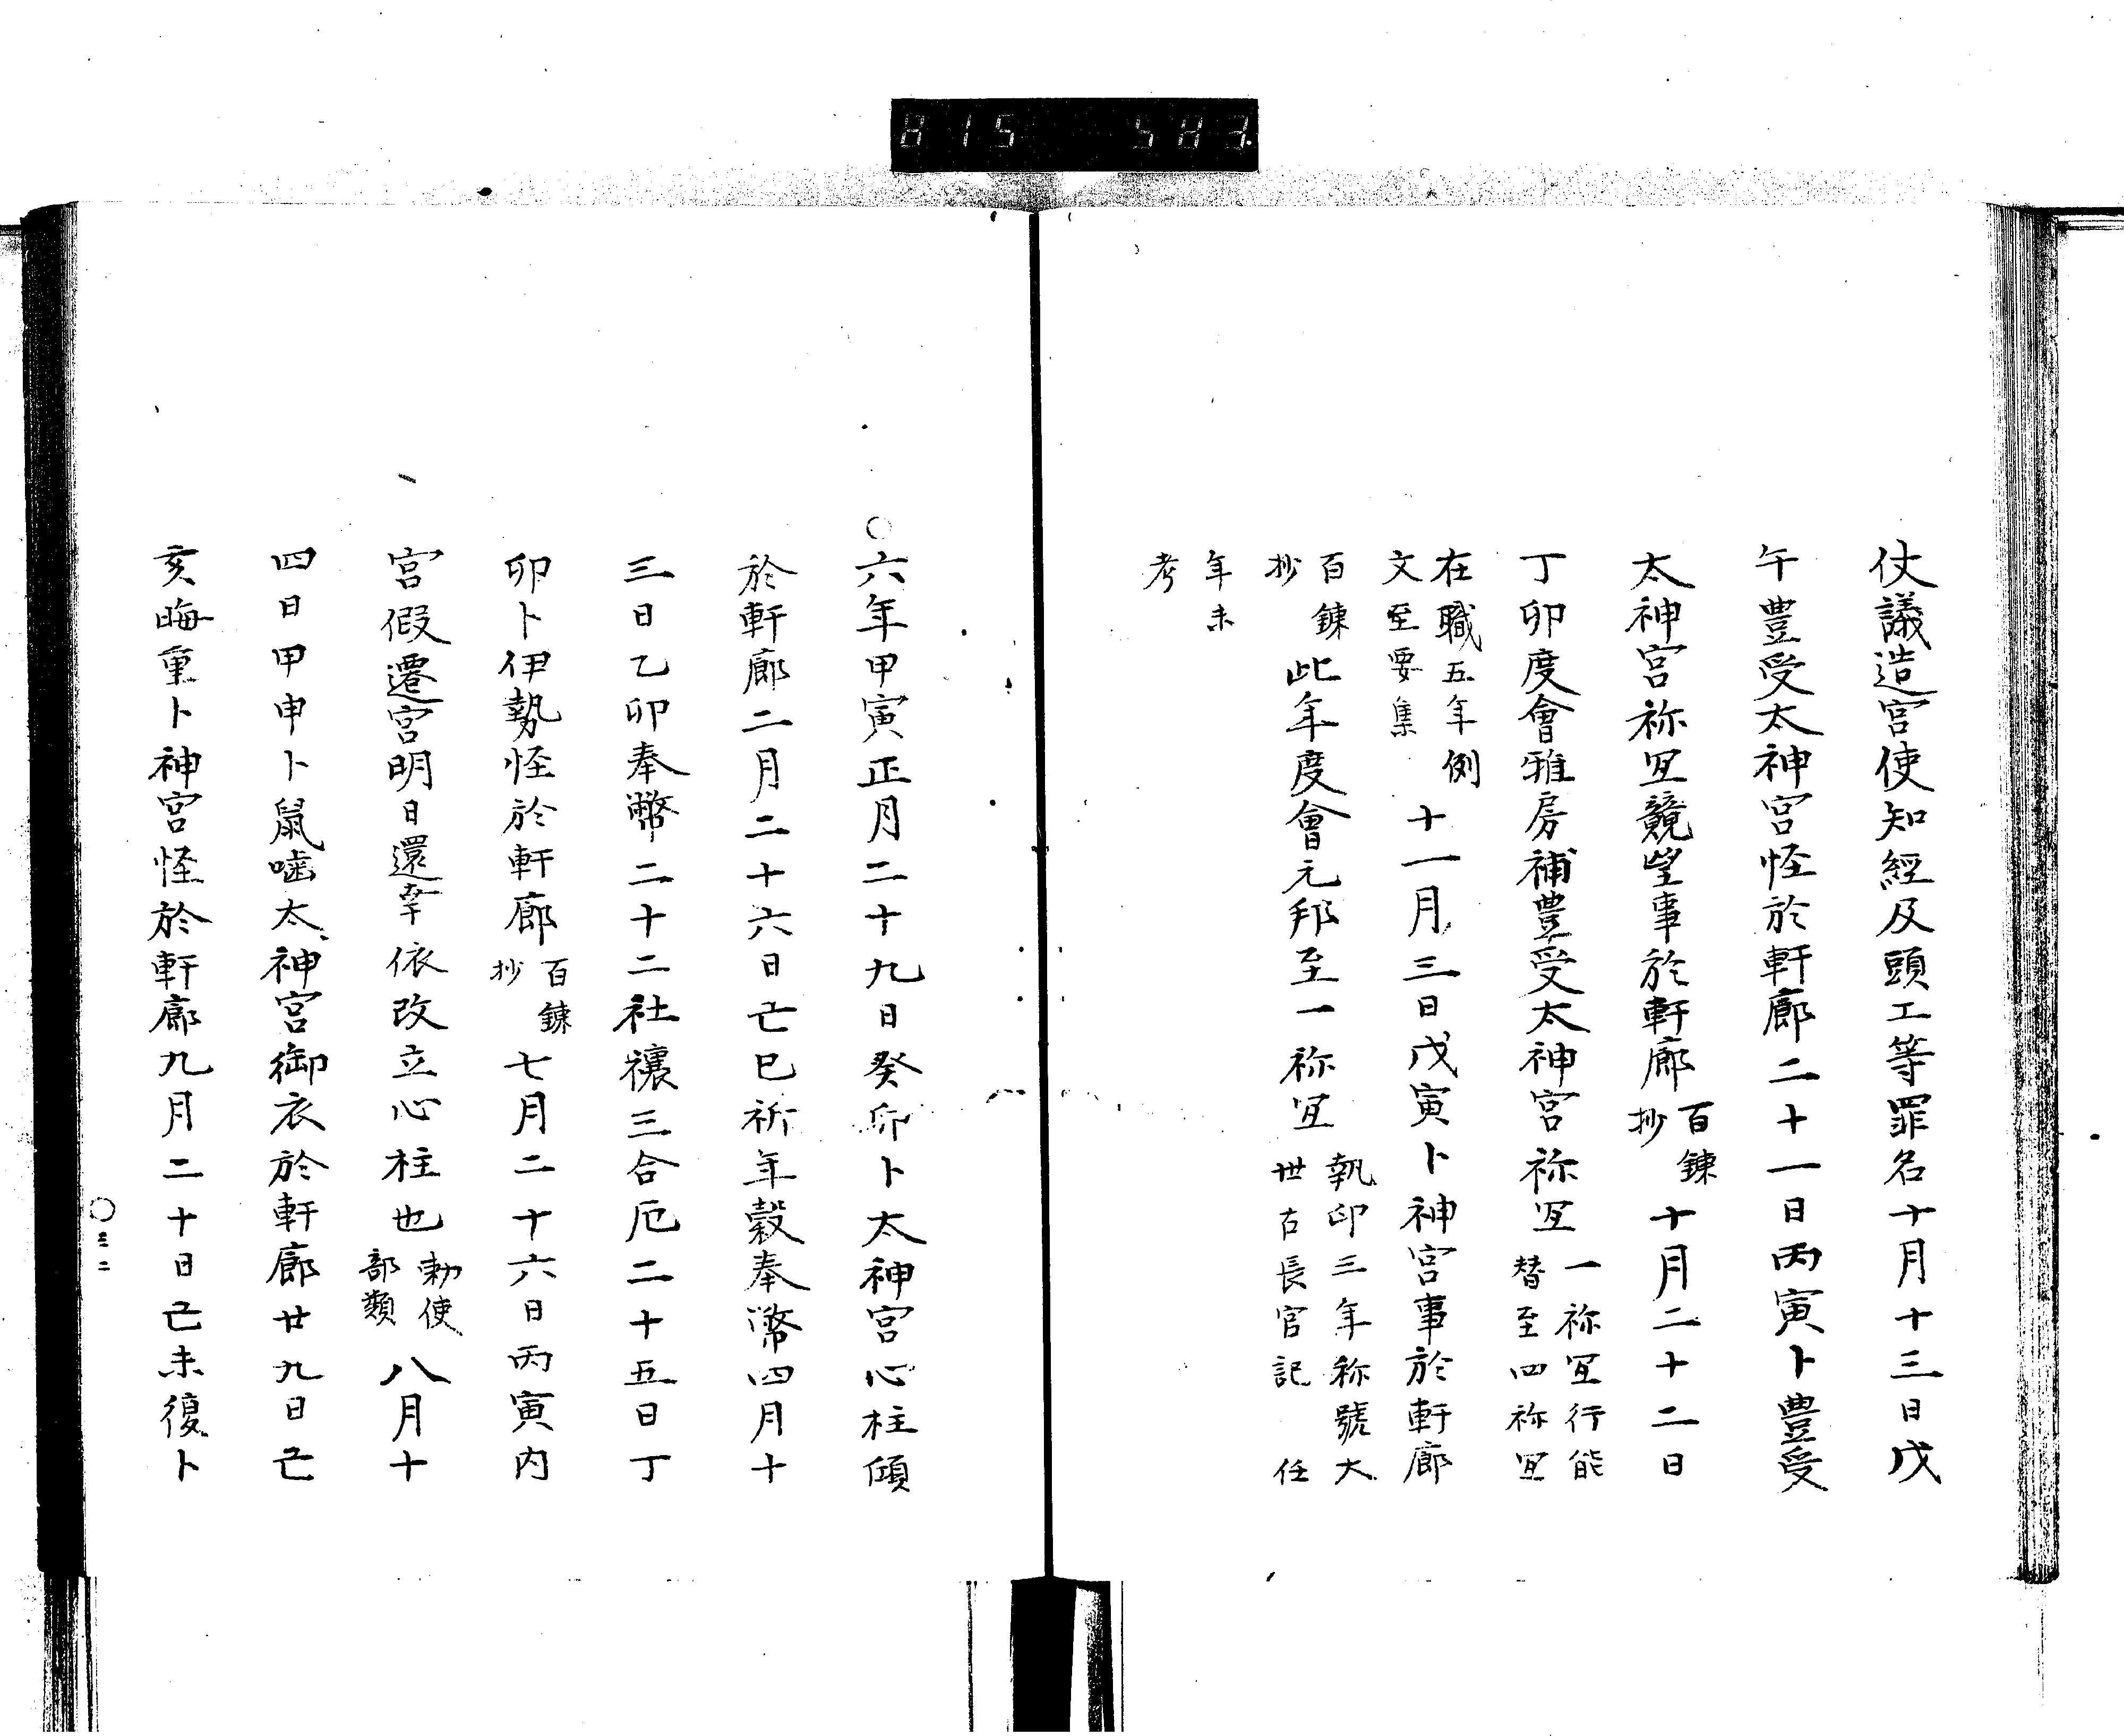 815 583
仗議造宮使知經及頭工等罪名十月十三日戊
午豊受太神宮怪於軒廊二十一日丙寅卜豊受
太神宮祢宜競望事於軒廊百錬抄十月二十二日
丁卯度會雅房補豊受太神宮祢宜一祢宜行能替至四祢宜
在職五年例文至要集十一月三日戊寅卜神宮事於軒廊
百錬抄此年度會元邦至一祢宜執印三年称號大世古長官記任
年未考
○六年甲寅正月二十九日癸卯卜太神宮心柱傾
於軒廊二月二十六日己巳祈年穀奉幣四月十
三日乙卯奉幣二十二社禳三合厄二十五日丁
卯卜伊勢怪於軒廊百錬抄七月二十六日丙寅内
宮假遷宮明日還幸依改立心柱也勅使部類八月十
四日甲申卜鼠噛太神宮御衣於軒廊廿九日己
亥晦重卜神宮怪於軒廊九月二十日己未復卜
○三二